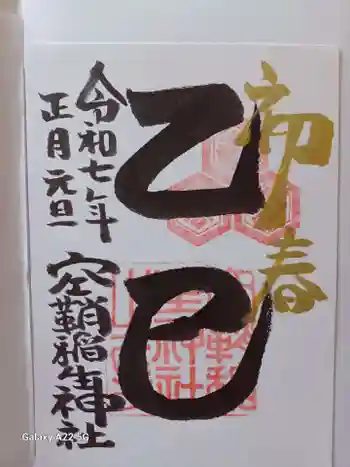 初春
乙巳
令和七年
正月元旦
空鞘稲生神社
Galaxy A22 5G